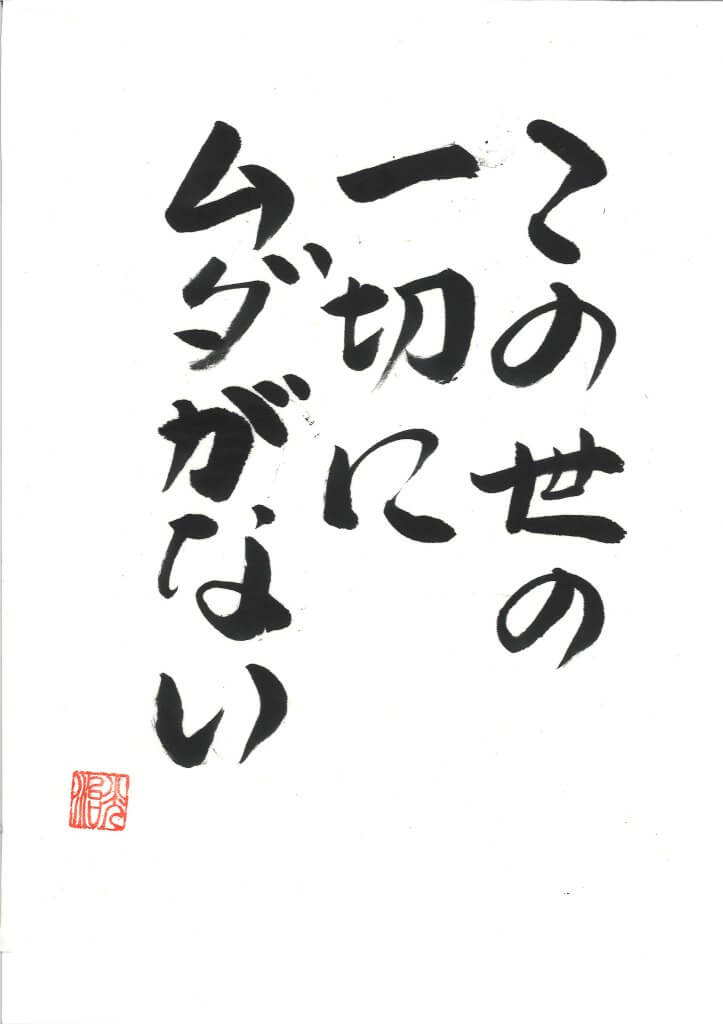 この世の
一切に
ムダがない